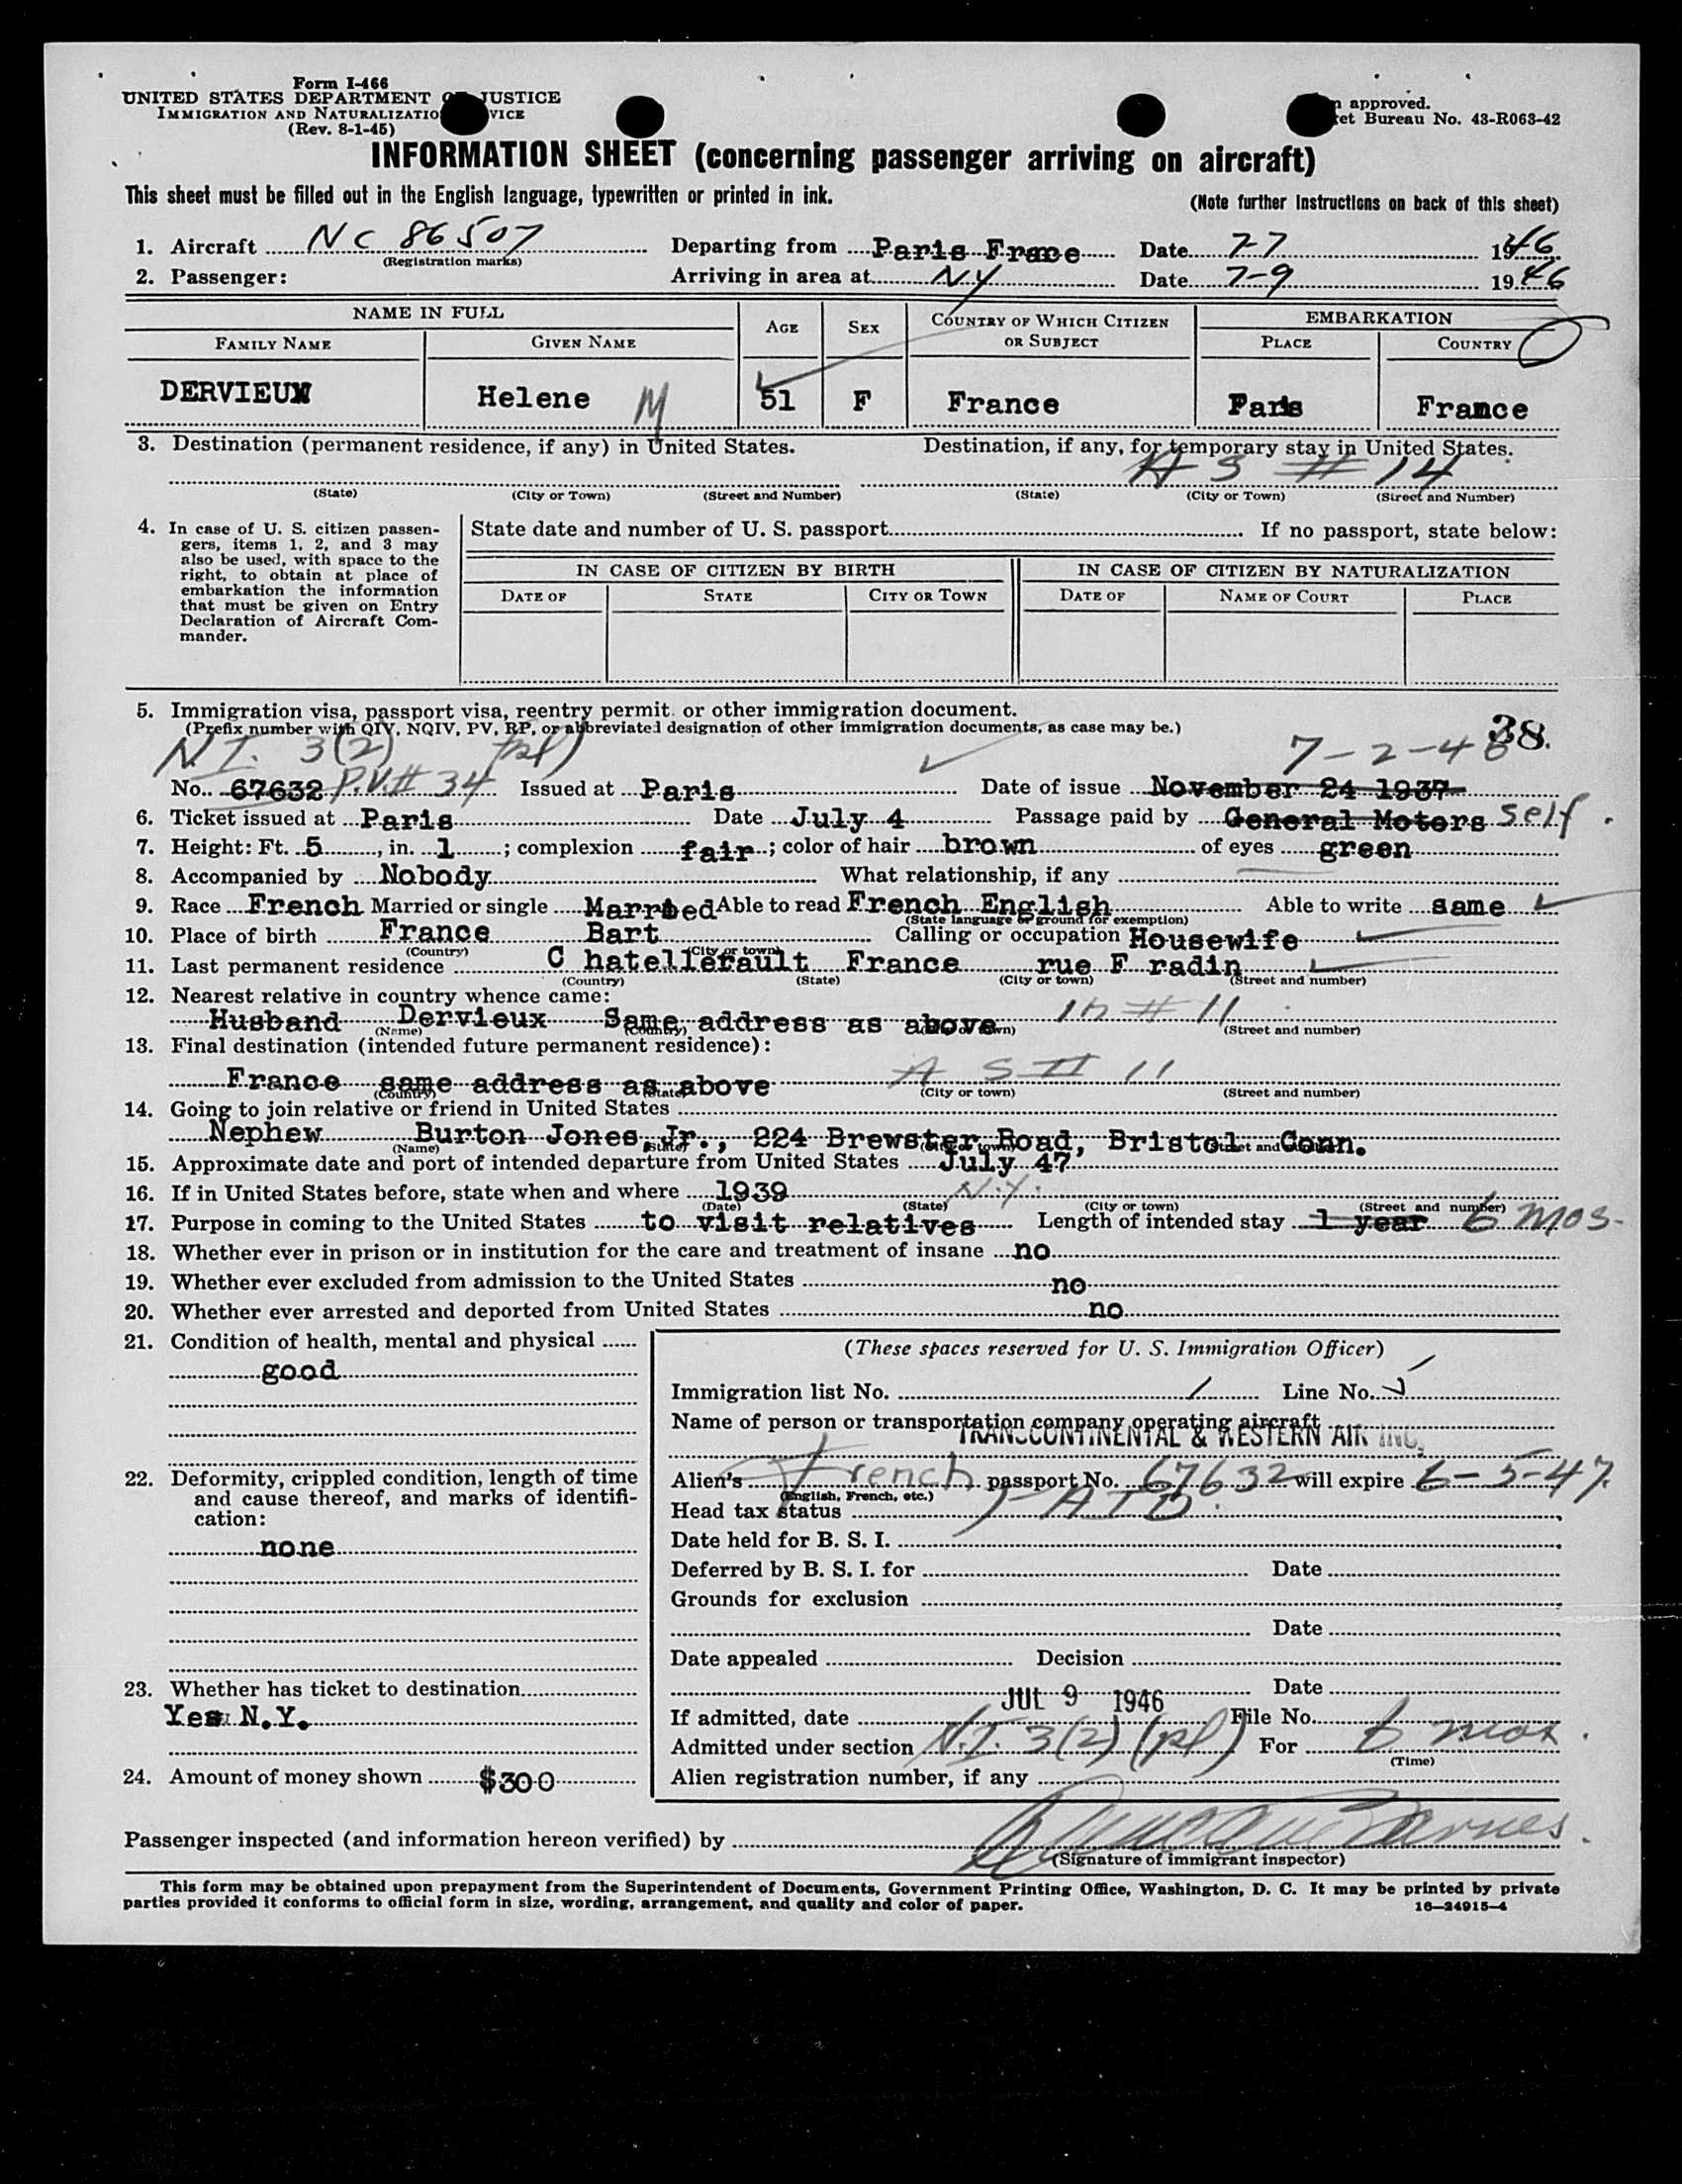 Form I-466
UNITED STATES DEPARTMENT OF JUSTICE
IMMIGRATION AND NATURALIZATIO VICE
(Rev. 8-1-45)
n approved.
et Bureau No. 43-R063-42
INFORMATION SHEET (concerning passenger arriving on aircraft)
This sheet must be filled out in the English language, typewritten or printed in ink.
(Note further instructions on back of this sheet)
1. Aircraft NC 86507 Departing from Paris Frace Date 7-7 1946
(Registration marks)
2. Passenger: Arriving in area at N.Y Date 7-9 1946
NAME IN FULL AGE SEX COUNTRY OF WHICH CITIZEN OR SUBJECT EMBARKATION
FAMILY NAME GIVEN NAME PLACE COUNTRY
DERVIEUX Helene M 51 F France Paris France
3. Destination (permanent residence, if any) in United States. Destination, if any, for temporary stay in United States.
A S # 14
(State) (City or Town) (Street and Number) (State) (City or Town) (Street and Number)
4. In case of U. S. citizen passen-
gers, items 1, 2, and 3 may
also be used, with space to the
right, to obtain at place of
embarkation the information
that must be given on Entry
Declaration of Aircraft Com-
mander.
State date and number of U. S. passport If no passport, state below:
IN CASE OF CITIZEN BY BIRTH IN CASE OF CITIZEN BY NATURALIZATION
DATE OF STATE CITY OR TOWN DATE OF NAME OF COURT PLACE
5. Immigration visa, passport visa, reentry permit or other immigration document.
(Prefix number with QIV, NQIV, PV, RP, or abbreviated designation of other immigration documents, as case may be.)
38.
N.I. 3(2) 7-2-46
No. 67632 P.V.# 34 Issued at Paris Date of issue November 24 1937
6. Ticket issued at Paris Date July 4 Passage paid by General Motors self.
7. Height: Ft. 5, in. 1; complexion fair; color of hair brown of eyes green
8. Accompanied by Nobody What relationship, if any
9. Race French Married or single Married Able to read French English Able to write same
(State language or ground for exemption)
10. Place of birth France Bart Calling or occupation Housewife
(Country) (City or town)
11. Last permanent residence C hatellerault France rue F radin
(Country) (State) (City or town) (Street and number)
12. Nearest relative in country whence came:
Husband Dervieux Same address as above in # 11
(Name) (Country) (Street and number)
13. Final destination (intended future permanent residence):
France same address as above A S # 11
(Country) (State) (City or town) (Street and number)
14. Going to join relative or friend in United States
Nephew Burton Jones, Jr., 224 Brewster Road, Bristol Conn.
(Name) (State) (City or town) (Street and number)
15. Approximate date and port of intended departure from United States July 47
16. If in United States before, state when and where 1939 N.Y.
(Date) (State) (City or town) (Street and number)
17. Purpose in coming to the United States to visit relatives Length of intended stay 1 year 6 mos.
18. Whether ever in prison or in institution for the care and treatment of insane no
19. Whether ever excluded from admission to the United States no
20. Whether ever arrested and deported from United States no
21. Condition of health, mental and physical
good
22. Deformity, crippled condition, length of time
and cause thereof, and marks of identifi-
cation:
none
23. Whether has ticket to destination
Yes N.Y.
24. Amount of money shown $300
(These spaces reserved for U. S. Immigration Officer)
Immigration list No. 1 Line No.
Name of person or transportation company operating aircraft
TRANSCONTINENTAL & WESTERN AIR INC.
Alien's French passport No. 67632 will expire 6-5-47.
(English, French, etc.)
Head tax status
Date held for B. S. I.
Deferred by B. S. I. for Date
Grounds for exclusion
Date
Date appealed Decision
Date
JUL 9 1946
If admitted, date File No.
Admitted under section N.I. 3(2) (pl) For 6 mos.
(Time)
Alien registration number, if any
Passenger inspected (and information hereon verified) by Barnes
(Signature of immigrant inspector)
This form may be obtained upon prepayment from the Superintendent of Documents, Government Printing Office, Washington, D. C. It may be printed by private
parties provided it conforms to official form in size, wording, arrangement, and quality and color of paper.
16—24915-4